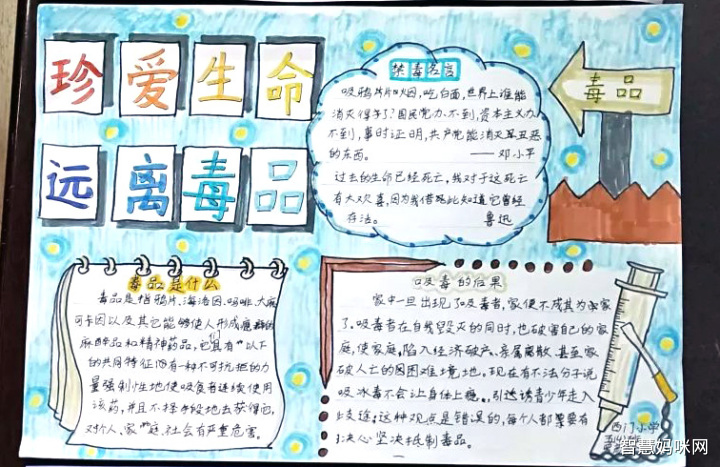 珍爱生命
远离毒品
禁毒名言
吸鸦片烟,吃白面,世界上谁能
消灭得了?国民党办不到,资本主义办
不到,事时证明,共产党能消灭草丑恶
的东西。
——邓小平
过去的生命已经死亡,我对于这死亡
有大欢喜,因为我借此知道它曾经
存活。 鲁迅
毒品
毒品是什么
毒品是指鸦片、海洛因、吗啡、大麻
可卡因以及其它能够使人形成瘾癖的
麻醉品和精神药品,它具有"以下
的共同特征他有种不可抗拒的力
量强制性地使吸食者连续使用
该药,并且不择手段地去获得它,
对个人、家庭、社会有严重危害。
吸毒的后果
家中一旦出现了吸毒者,家便不成其为家
了。吸毒者在自我毁灭的同时,也破害自己的家
庭,使家庭陷入经济破产、亲属离散、甚至家
破人亡的困难境地。现在有不法分子说
吸冰毒不会让身体上瘾。引透诱青少年走入
歧途,这种观点是错误的,每个人都要有
决心坚决抵制毒品。
西门小学
智慧妈咪网